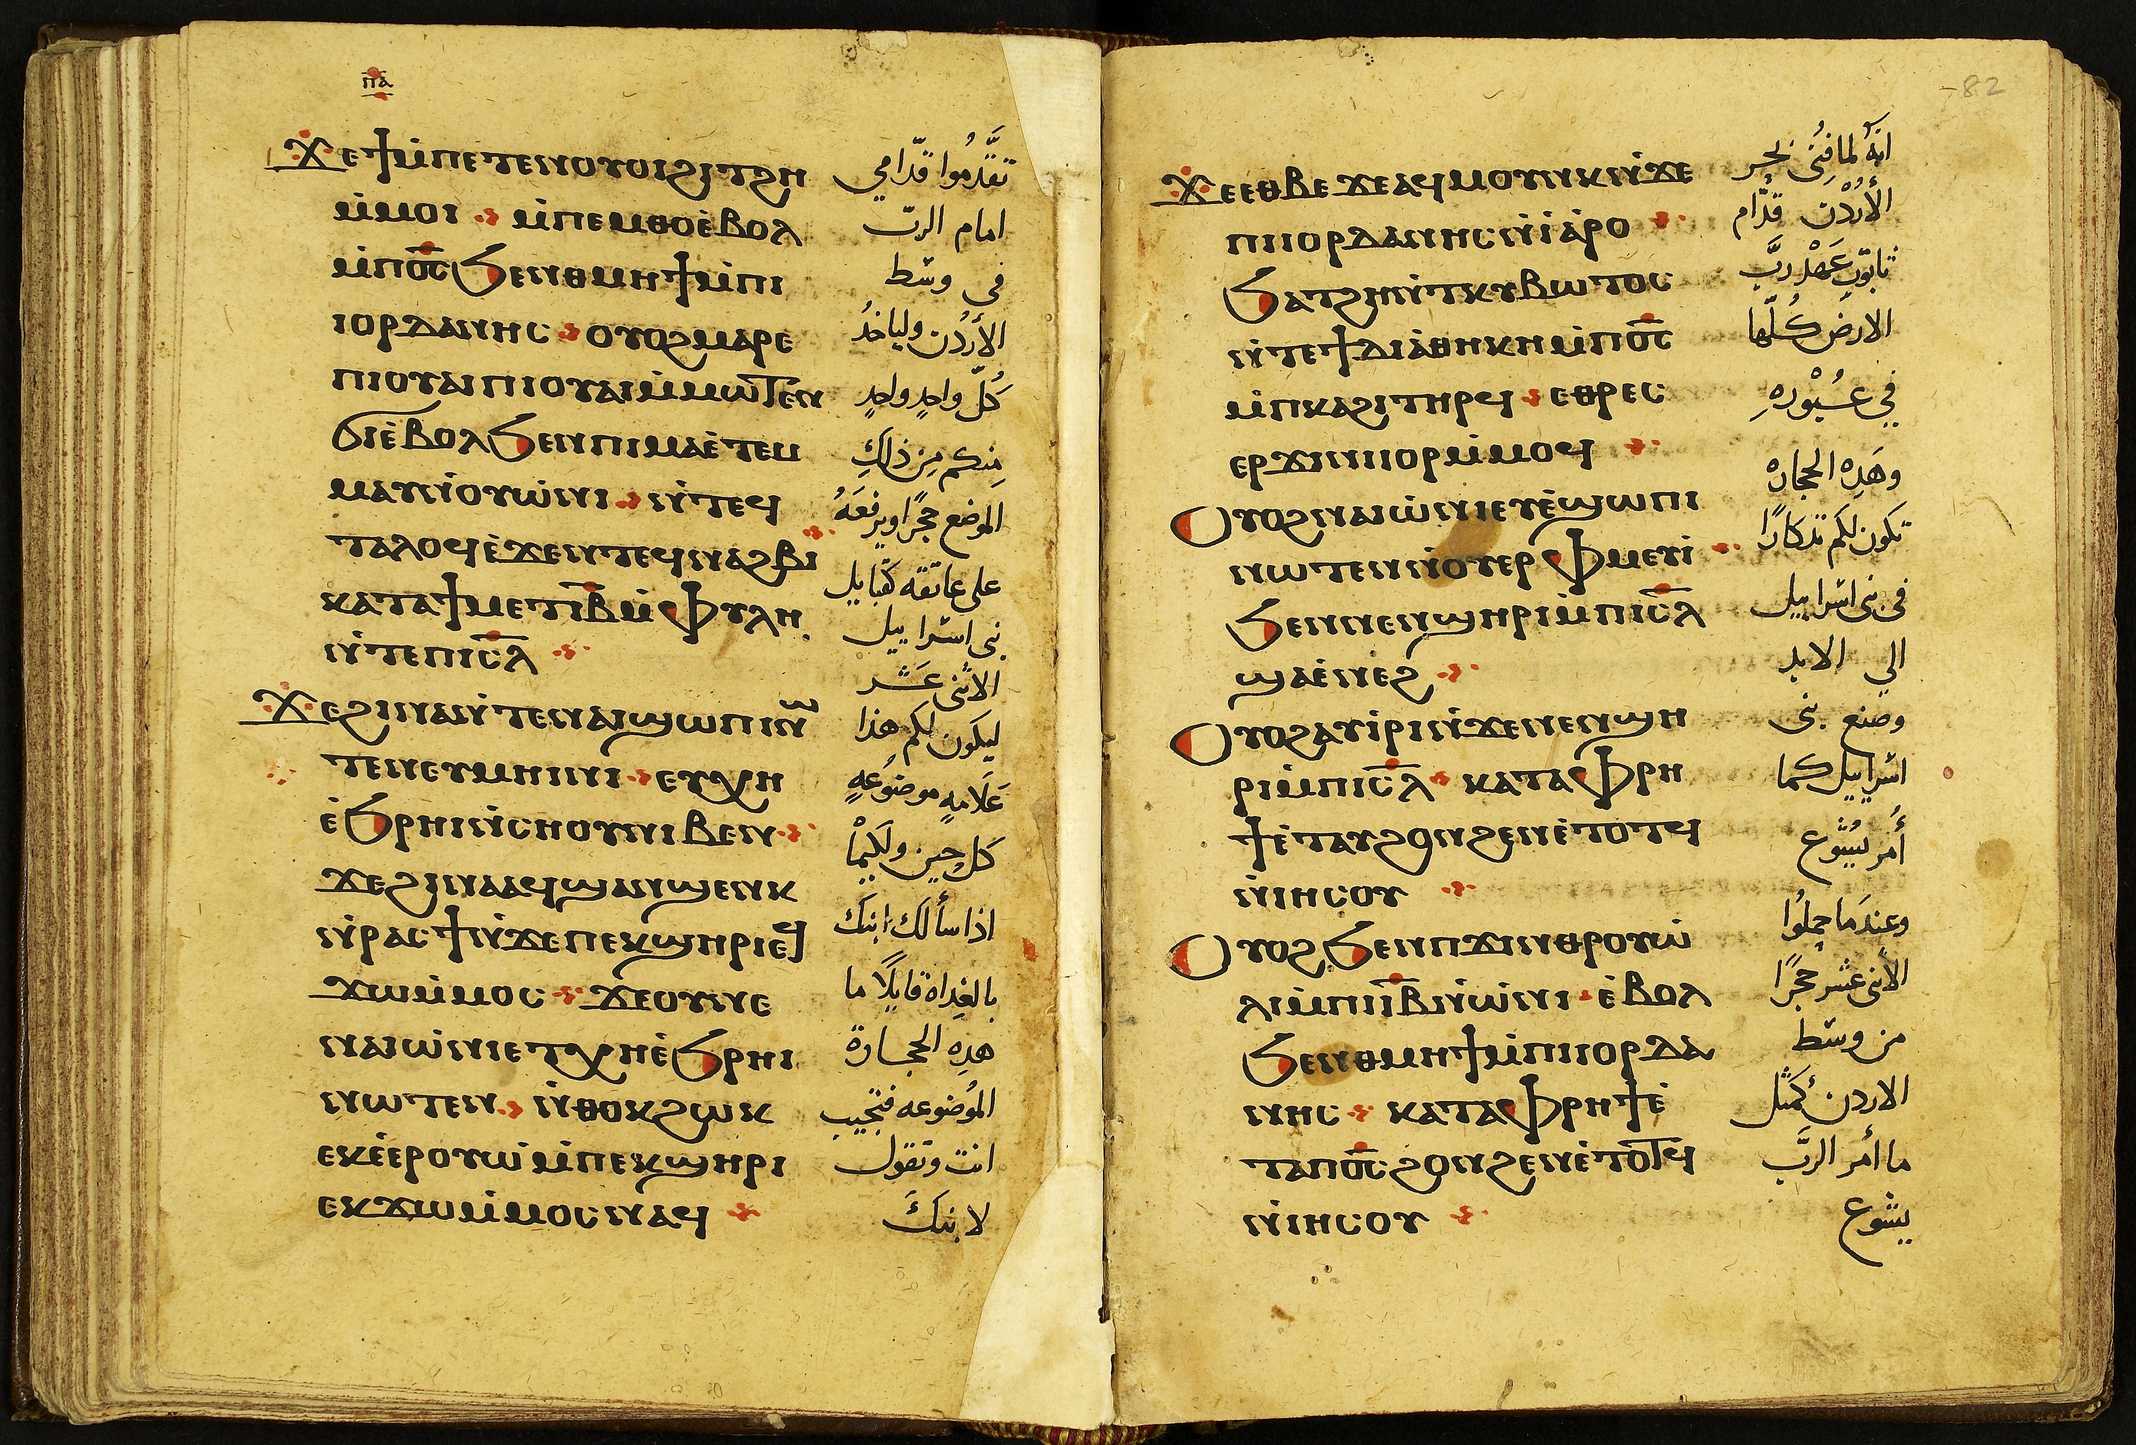 ⲡ̅ⲁ̅
ϫⲉϯⲙ̇ⲡⲉⲧⲉⲛⲟⲩⲟⲓϩⲓⲧϩⲏ
ⲙ̇ⲙⲟⲓ ⲙ̇ⲡⲉⲙⲑⲟⲉ̇ⲃⲟⲗ
ⲙ̇ⲡⲟ̅ⲥ̅ϧⲉⲛⲑⲙⲏϯⲙ̇ⲡⲓ
ⲓⲟⲣⲇⲁⲛⲏⲥ ⲟⲩⲟϩⲙⲁⲣⲉ
ⲡⲓⲟⲩⲁⲓⲡⲓⲟⲩⲁⲓⲙ̇ⲙⲱⲧⲉⲛ
ϭⲓⲉ̇ⲃⲟⲗϧⲉⲛⲡⲓⲙⲁⲉ̇ⲧⲉⲙ
ⲙⲁⲩⲛ̇ⲟⲩⲱ̇ⲛⲓ ⲛ̇ⲧⲉϥ
ⲧⲁⲗⲟϥⲉ̇ϫⲉⲛⲧⲉϥⲛⲁϩⲃⲓ
ⲕⲁⲧⲁϯⲙⲉⲧⲓ̅ⲃ̅ⲙ̇ⲫⲩⲗⲏ
ⲛ̇ⲧⲉⲡⲓⲥ̅ⲗ̅
ϫⲉϩⲓⲛⲁⲛ̇ⲧⲉⲛⲁⲓϣⲱⲡⲓⲛⲱ
ⲧⲉⲛⲉⲩⲙⲏⲓⲛⲓ ⲉⲩⲭⲏ
ⲉ̇ϧⲣⲏⲓⲛ̇ⲥⲏⲟⲩⲛⲓⲃⲉⲛ
ϫⲉϩⲓⲛⲁⲁϥϣⲁⲛϣⲉⲛⲕ
ⲛ̇ⲣⲁⲥϯⲛ̇ϫⲉⲡⲉⲕϣⲏⲣⲓⲉϥ
ϫⲱⲙ̇ⲙⲟⲥ ϫⲉⲟⲩⲛⲉ
ⲛⲁⲓⲱ̇ⲛⲓⲉⲧⲭⲏⲉ̇ϧⲣⲏⲓ
ⲛⲱⲧⲉⲛ ⲛ̇ⲑⲟⲕϩⲱⲕ
ⲉⲕⲉ̇ⲉⲣⲟⲩⲱ̇ⲙ̇ⲡⲉⲕϣⲏⲣⲓ
ⲉⲕϫⲱⲙ̇ⲙⲟⲥⲛⲁϥ
تقَّدمُوا قدّامي
امام الربّ
في وسّط
الأردُن ولياخدُ
كُلّ واحِدٍ واحِدٍ
مِنكم مِن ذاكَ
الموضع حجرًا ويرفعَهُ
على عاتقه كقبايل
بني اسرابيل
الاثنى عَشر
ليكون لكم هذا
عَلَامهٍ موضُوعهٍ
كل حِين ولكَيْما
اذا سألكَ ابنكَ
بالغِداة قايلًا ما
هدِه الحجارة
الموُضوعه فتجيب
انت وتقول
لابنكَ
82
ϫⲉⲉⲑⲃⲉϫⲉⲁϥⲙⲟⲩⲛⲕⲛ̇ϫⲉ
ⲡⲓⲓⲟⲣⲇⲁⲛⲏⲥⲛ̇ⲓ̇ⲁ̇ⲣⲟ
ϧⲁⲧϩⲏⲛ̇ⲧⲕⲩⲃⲱⲧⲟⲥ
ⲛ̇ⲧⲉϯⲇⲓⲁ̇ⲑⲏⲕⲏⲙ̇ⲡⲟ̅ⲥ̅
ⲙ̇ⲡⲕⲁϩⲓⲧⲏⲣϥ ⲉⲑⲣⲉⲥ
ⲉⲣϫⲓⲛⲓⲟⲣⲙ̇ⲙⲟϥ
ⲟⲩⲟϩⲛⲁⲓⲱ̇ⲛⲓⲉⲩⲉ̇ϣⲱⲡⲓ
ⲛⲱⲧⲉⲛⲛ̇ⲟⲩⲉⲣⲫⲙⲉⲩⲓ̇
ϧⲉⲛⲛⲉⲛϣⲏⲣⲓⲙ̇ⲡⲓⲥ̅ⲗ̅
ϣⲁⲉ̇ⲛⲉϩ
ⲟⲩⲟϩⲁⲩⲓ̇ⲣⲓⲛ̇ϫⲉⲛⲉⲛϣⲏ
ⲣⲓⲙ̇ⲡⲓⲥ̅ⲗ̅ ⲕⲁⲧⲁⲫⲣⲏ
ϯⲉ̇ⲧⲁⲩϩⲟⲛϩⲉⲛⲉ̇ⲧⲟⲧϥ
ⲛ̇ⲓⲏⲥⲟⲩ
ⲟⲩⲟϩϧⲉⲛⲡϫⲓⲛⲑⲣⲟⲩⲱ̇
ⲗⲓⲙ̇ⲡⲓⲓ̅ⲃ̅ⲛ̇ⲱ̇ⲛⲓ ⲉ̇ⲃⲟⲗ
ϧⲉⲛⲑⲙⲏϯⲙ̇ⲡⲓⲓⲟⲣⲇⲁ
ⲛⲏⲥ ⲕⲁⲧⲁⲫⲣⲏϯⲉ̇
ⲧⲁⲡⲟ̅ⲥ̅ϩⲟⲛϩⲉⲛⲉ̇ⲧⲟⲧϥ
ⲛ̇ⲓⲏⲥⲟⲩ
انهُ لما فنِى نهر
الأردُن قدَّام
تابوت عَهْد ربَّ
الارض كُلّها
في عُبُورِهِ
وهَدِه الحجاره
تكون لكم تدكارًا
في بني اسرابيل
الي الابد
وصنع بني
اسرابيل كما
أُمر ليُشُوع
وعِندَما حملوُا
الاثنى عشر حجرًا
من وسّط
الاردن كمثل
ما أمر الربَّ
يشوع